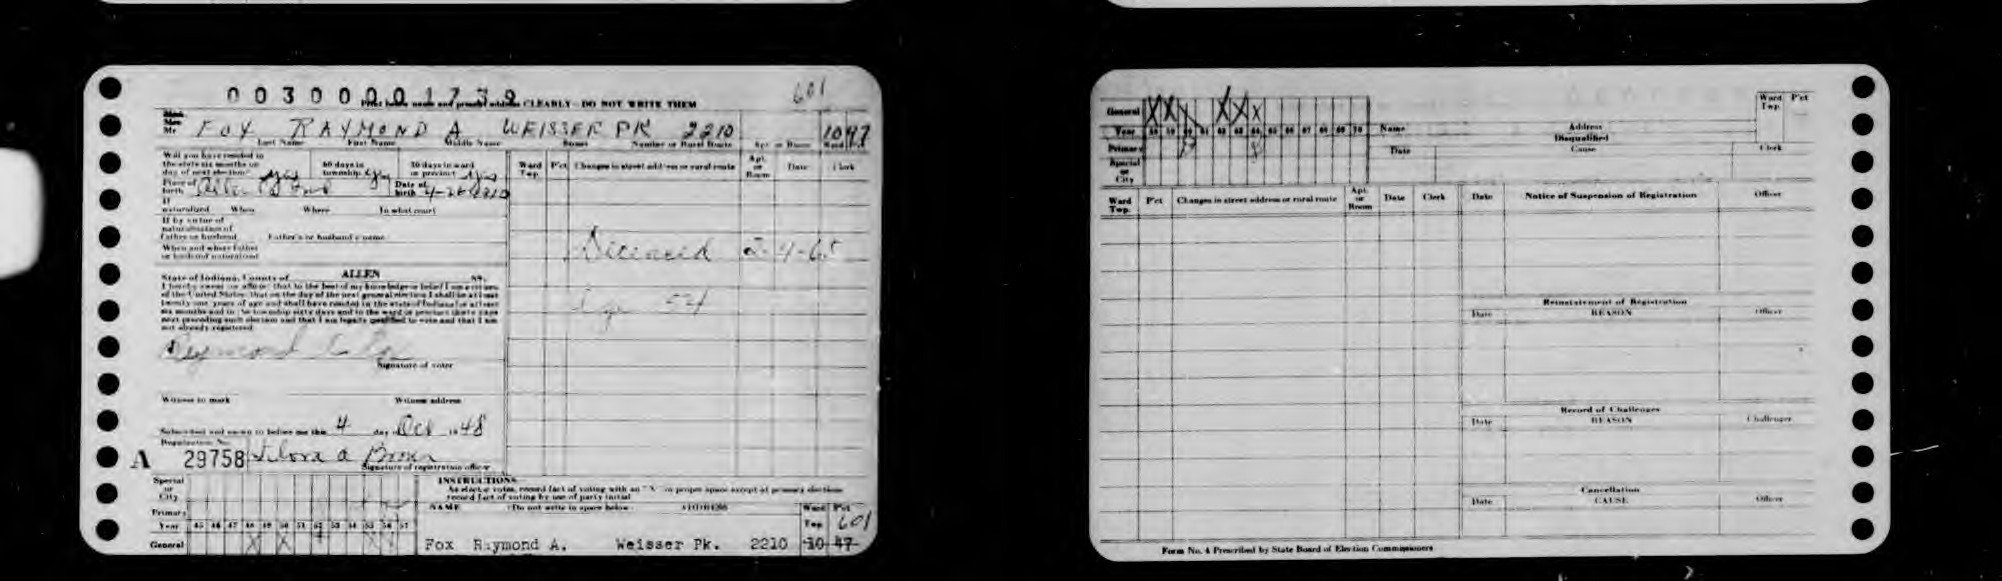 0030000 1739
Print below name and present address CLEARLY - DO NOT WRITE THEM
601
Mr
FOX RAYMOND A WEISSER PK 2210 1047
Last Name First Name Middle Name Street Number or Rural Route Apt. or Room Ward Pct
Will you have resided in
the state six months on
day of next election? yes
60 days in
township yes
30 days in ward
or precinct yes
Place of
birth
Date of
birth 4-26-1910
If
naturalized When Where In what court
If by virtue of
naturalization of
father or husband Father's or husband's name
When and where father
or husband naturalized
State of Indiana, County of ALLEN SS.
I hereby swear or affirm that to the best of my knowledge or belief I am a citizen
of the United States; that on the day of the next general election I shall be at least
twenty one years of age and shall have resided in the state of Indiana for at least
six months and in the township sixty days and in the ward or precinct thirty days
next preceding such election and that I am legally qualified to vote and that I am
not already registered
Raymond
Signature of voter
Witness to mark Witness address
Subscribed and sworn to before me this 4 day Oct 1948
Registration No.
A 29758
Signature of registration officer
Ward
Twp. P'ct Changes in street address or rural route Apt.
or
Room Date Clerk
Deceased 2-4-65
Age 54
Special
or
City
Primary
Year 45 46 47 48 49 50 51 52 53 54 55 56 57
General X X
INSTRUCTIONS
As elector votes, record fact of voting with an "X" in proper space except at primary elections
record fact of voting by use of party initial
NAME (Do not write in space below) ADDRESS Ward P'ct
Twp. 601
Fox Raymond A. Weisser Pk. 2210 10 47
General X X X X X
Year 58 59 60 61 62 63 64 65 66 67 68 69 70
Primary
Special
or
City
Name Address
Ward
Twp. P'ct
Disqualified
Date Cause Clerk
Ward
Twp. P'ct Changes in street address or rural route Apt.
or
Room Date Clerk
Date Notice of Suspension of Registration Officer
Reinstatement of Registration
Date REASON Officer
Record of Challenges
Date REASON Challenger
Cancellation
Date CAUSE Officer
Form No. 4 Prescribed by State Board of Election Commissioners